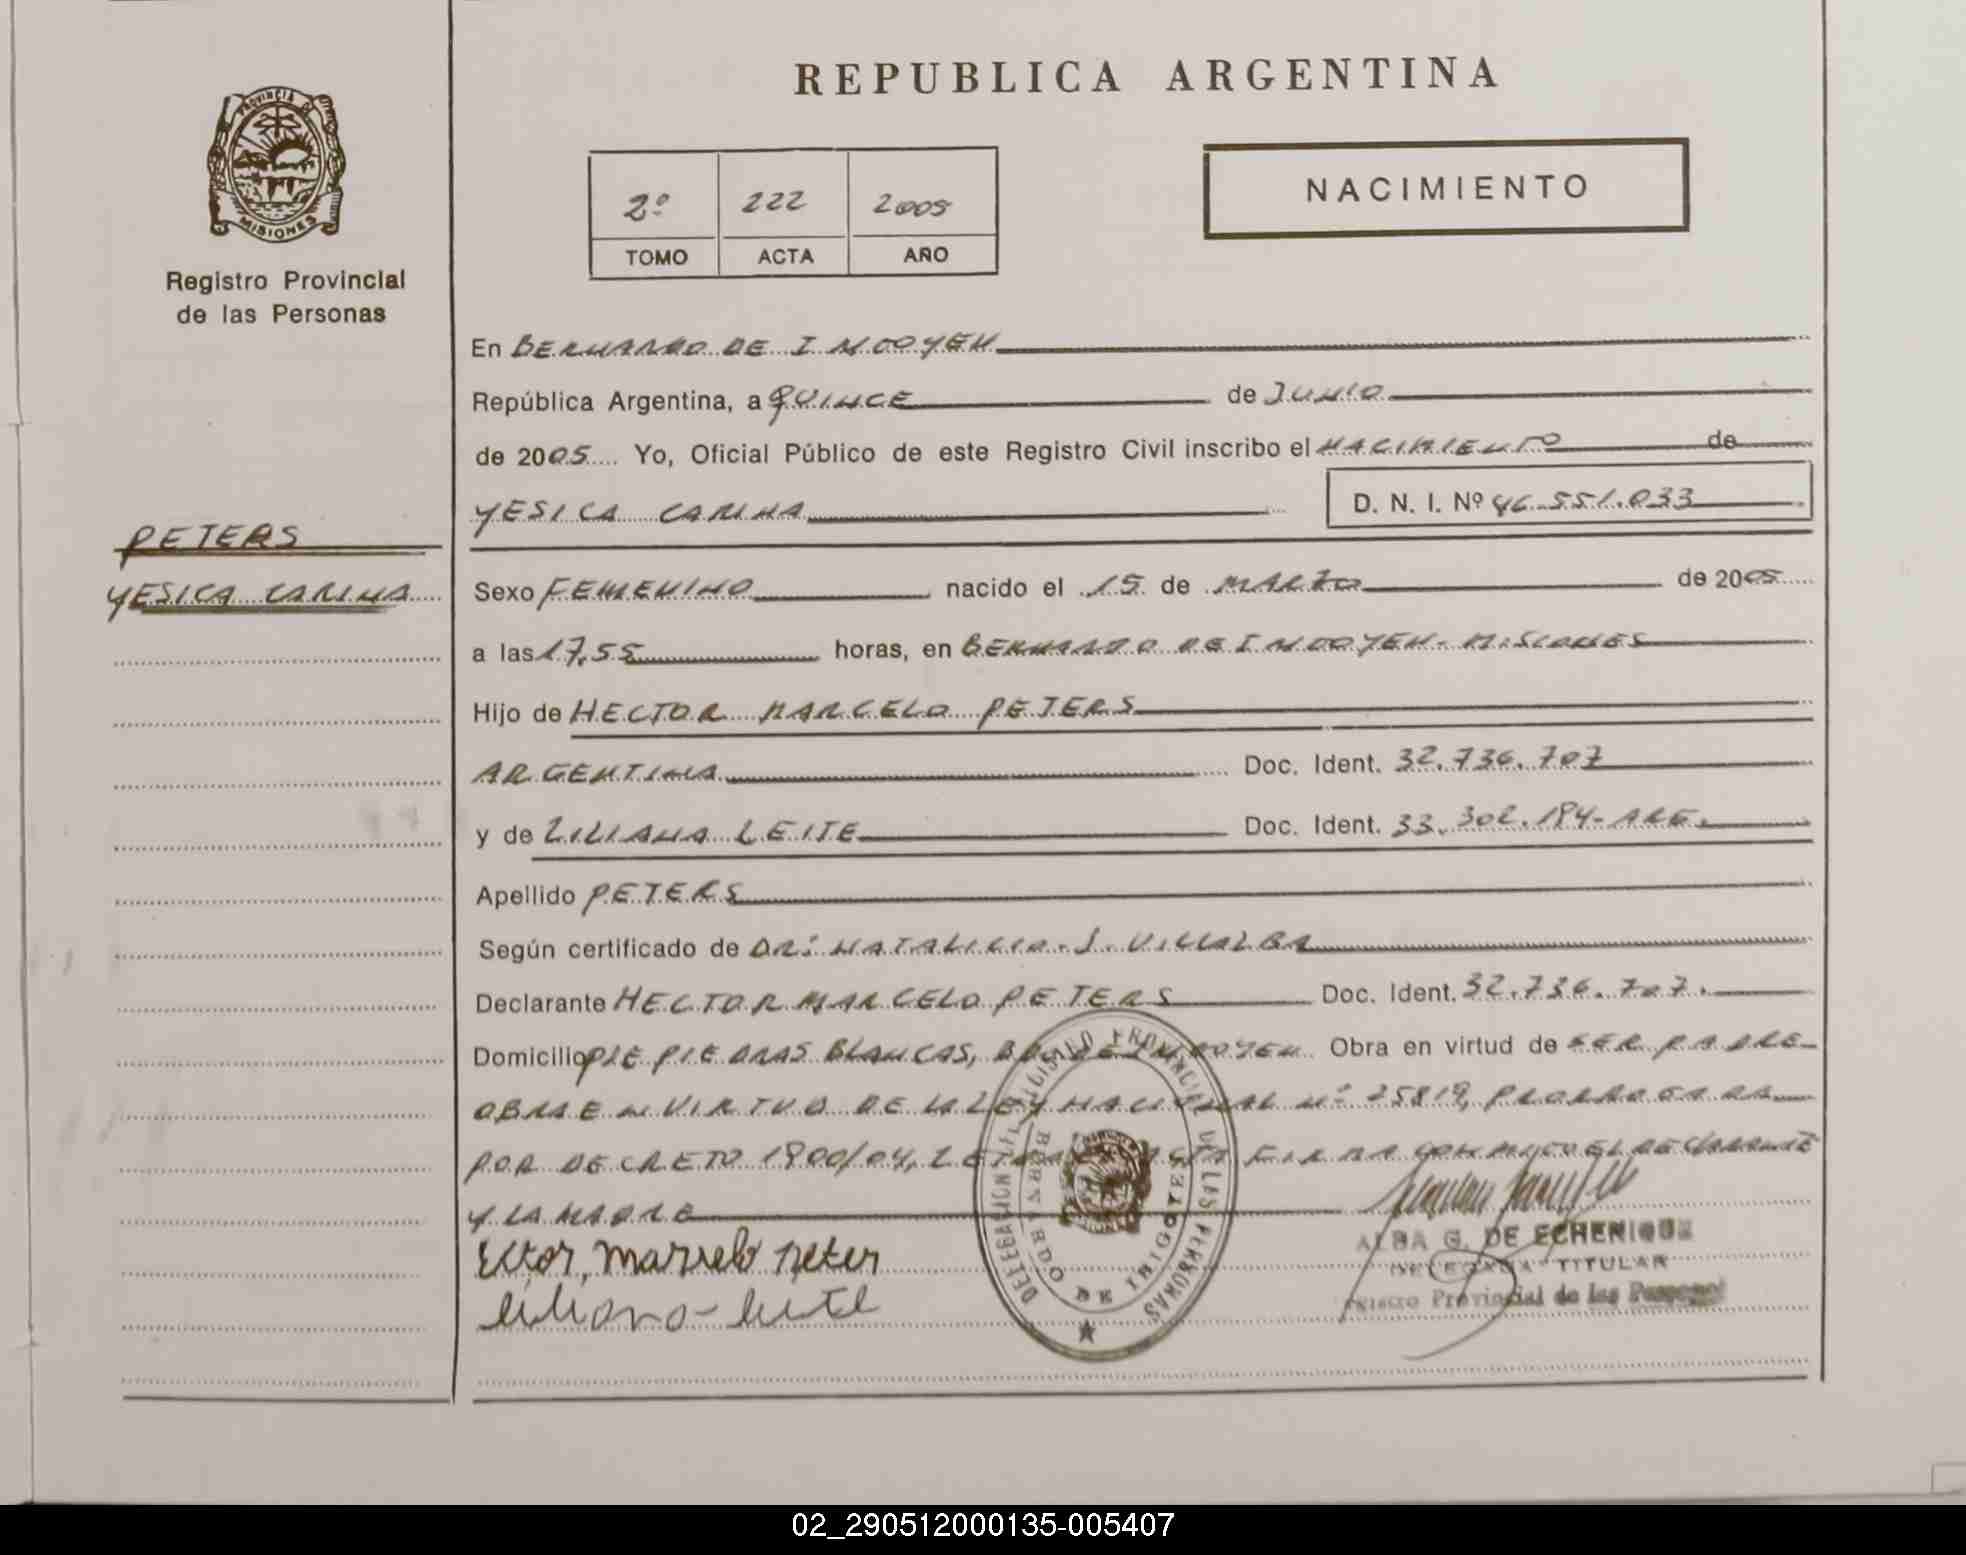 REPUBLICA ARGENTINA
PROVINCIA DE
MISIONES
Registro Provincial
de las Personas
2º 222 2005
TOMO ACTA AÑO
NACIMIENTO
En BERNARDO DE IRIGOYEN
República Argentina, a QUINCE de JUNIO
de 2005 Yo, Oficial Público de este Registro Civil inscribo el NACIMIENTO de
YESICA CARINA D. N. I. Nº 46.551.033
PETERS
YESICA CARINA
Sexo FEMENINO nacido el 15 de MARZO de 2005
a las 17,55 horas, en BERNARDO DE IRIGOYEN - MISIONES
Hijo de HECTOR MARCELO PETERS
ARGENTINA Doc. Ident. 32.736.707
y de LILIANA LEITE Doc. Ident. 33.302.194- ARG.
Apellido PETERS
Según certificado de DR: NATALICIO. J. VILLALBA
Declarante HECTOR MARCELO PETERS Doc. Ident. 32.736.707.
Domicilio PJE PIEDRAS BLANCAS, BDO DE IRIGOYEN Obra en virtud de SER PADRE-
OBRAE EN VIRTUD DE LA LEY NACIONAL Nº 25819, PRORROGADA
POR DECRETO 1900/04, LEIDA ACTA FIRMA CONMIGO EL DECLARANTE
Y LA MADRE
Ector, marselo peter
liliana- leite
DELEGACION DEL REGISTRO PROVINCIAL DE LAS PERSONAS
BERNARDO DE IRIGOYEN
ALBA G. DE ECHENIQUE
DELEGADA TITULAR
Registro Provincial de las Personas
02_290512000135-005407